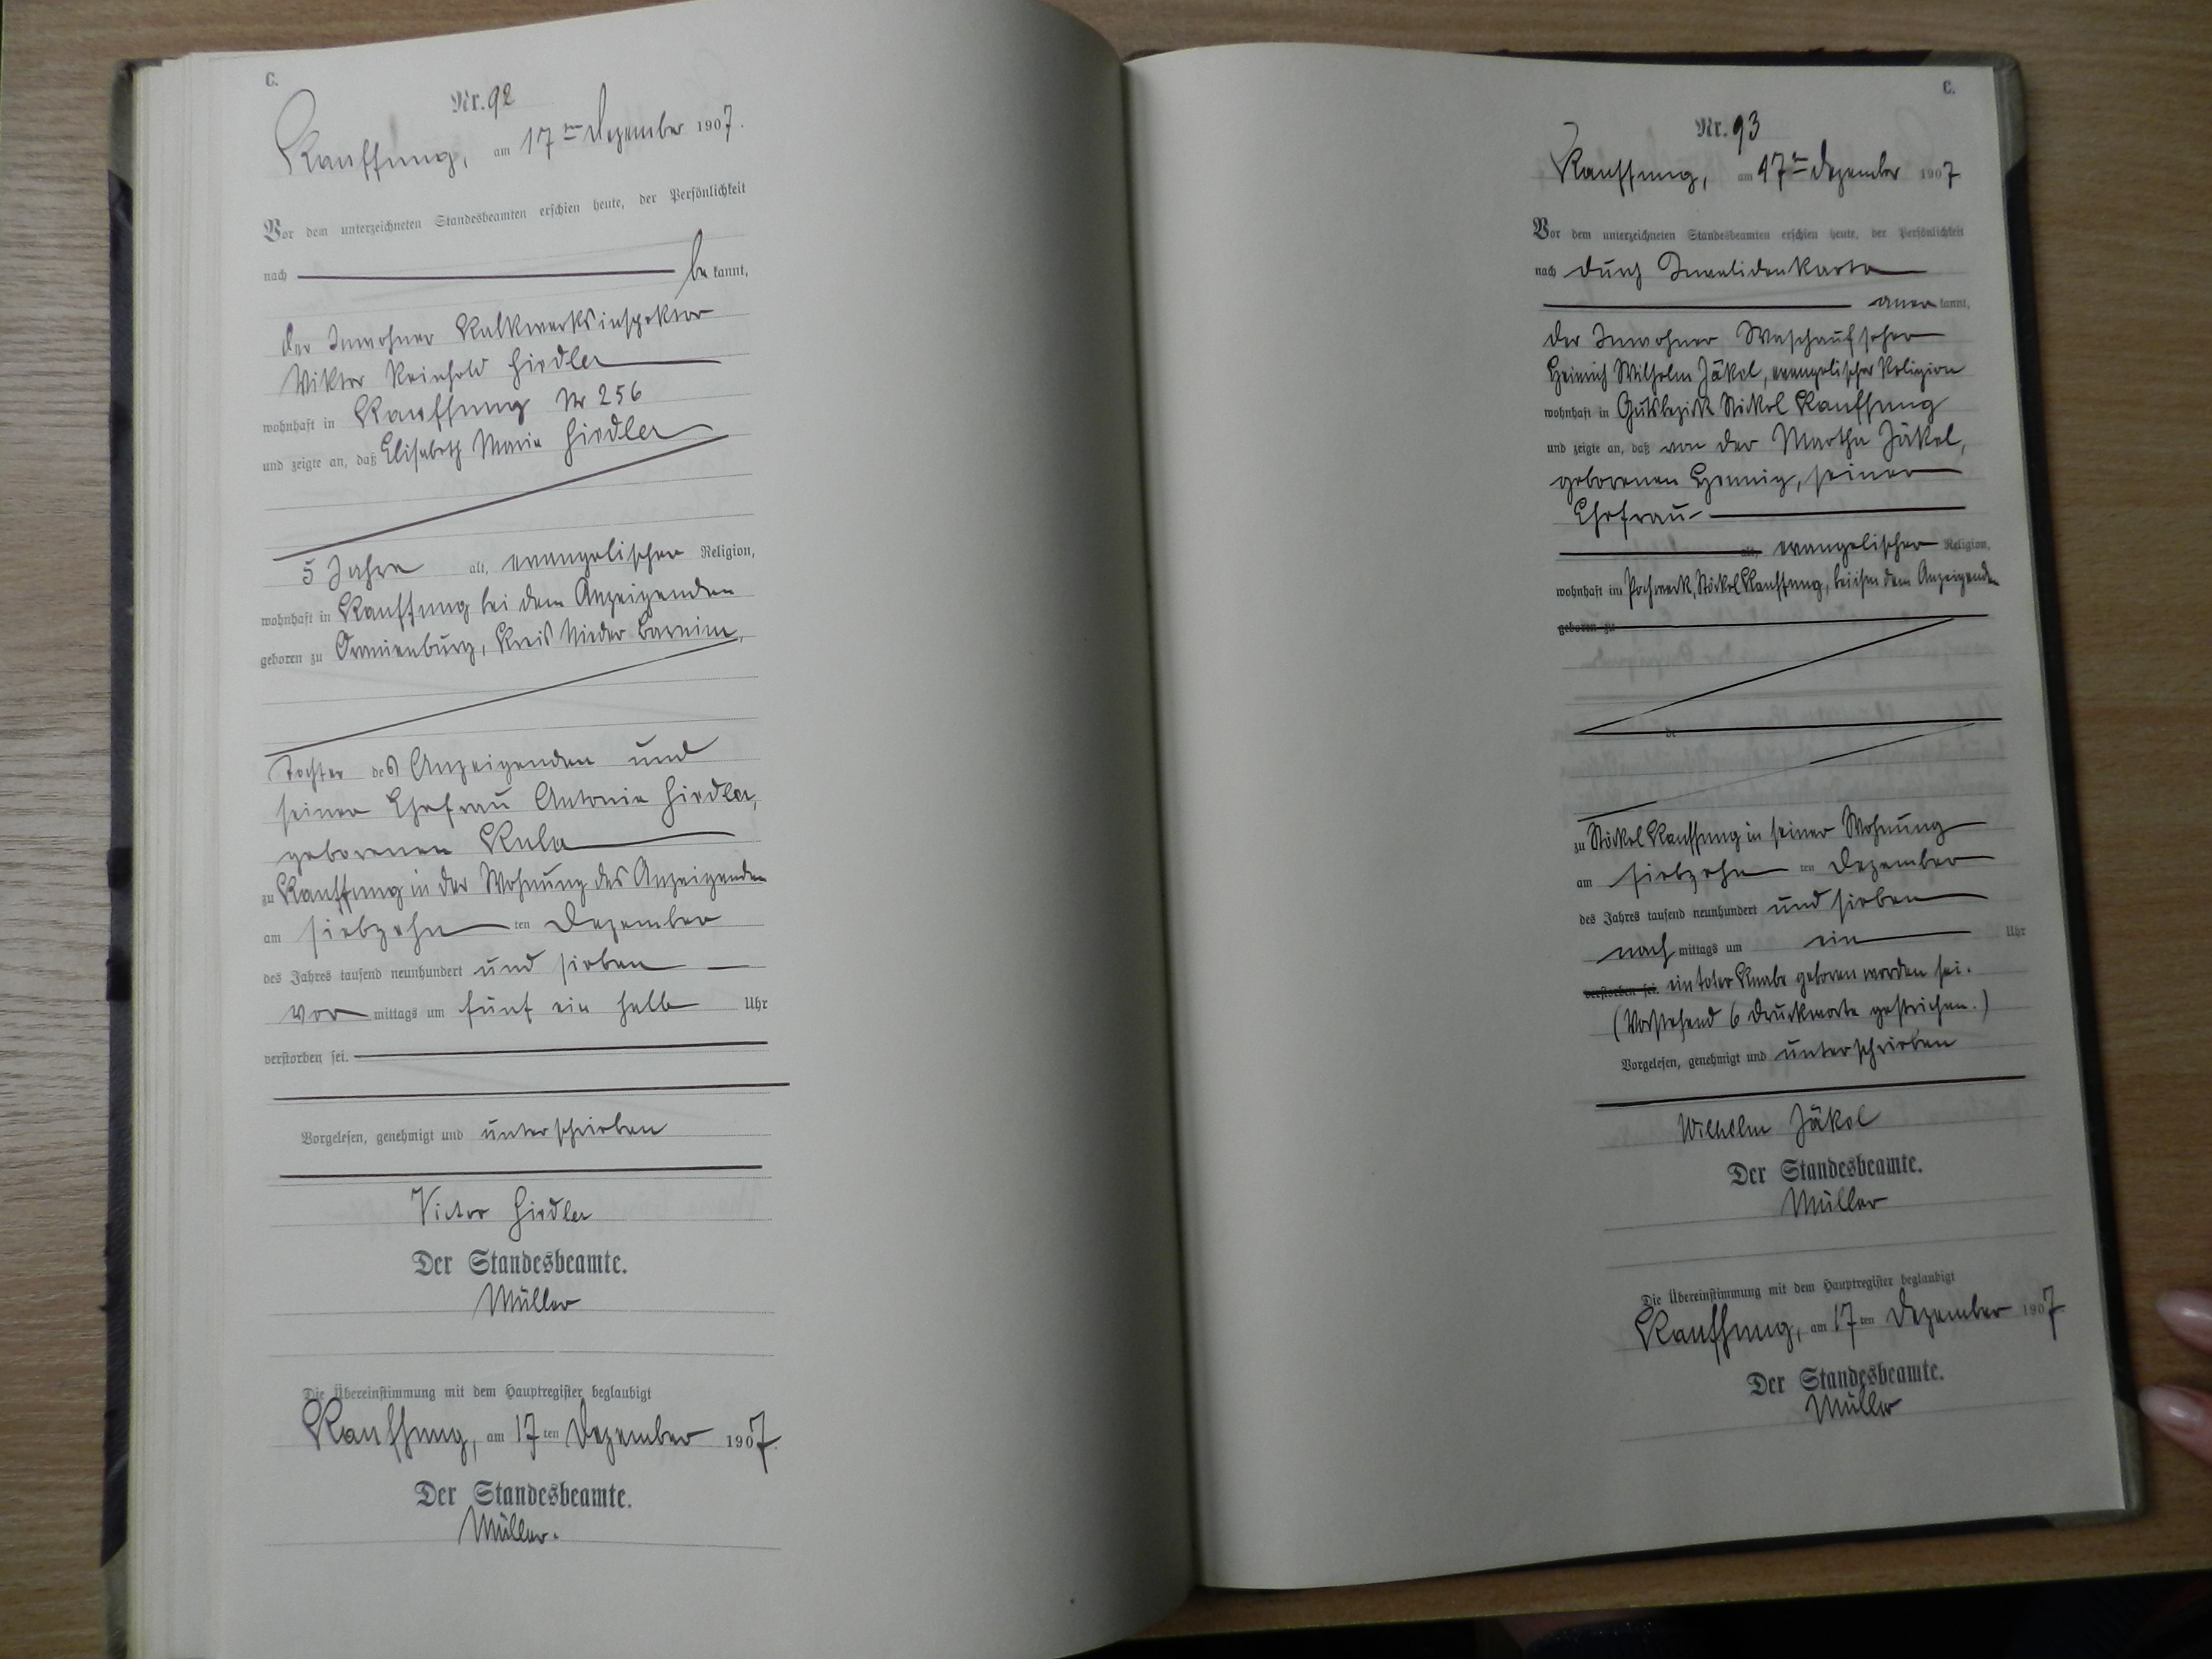 C.
Nr. 92
Kauffung, am 17ten Dezember 1907.
Vor dem unterzeichneten Standesbeamten erschien heute, der Persönlichkeit
nach be kannt,
der Inwohner Kalkwerksinspektor
Viktor Reinhold Fiedler
wohnhaft in Kauffung Nr 256
und zeigte an, daß Elisabeth Maria Fiedler
5 Jahre alt, evangelischer Religion,
wohnhaft in Kauffung bei dem Anzeigenden
geboren zu Oranienburg, Kreis Nieder Barnim,
Tochter des Anzeigenden und
seiner Ehefrau Antonie Fiedler,
geborenen Kula
zu Kauffung in der Wohnung des Anzeigenden
am siebzehn ten Dezember
des Jahres tausend neunhundert und sieben
vor mittags um fünf ein halb Uhr
verstorben sei.
Vorgelesen, genehmigt und unterschrieben
Victor Fiedler
Der Standesbeamte.
Müller
Die Übereinstimmung mit dem Hauptregister beglaubigt
Kauffung, am 17 ten Dezember 1907.
Der Standesbeamte.
Müller.
C.
Nr. 93
Kauffung, am 17ten Dezember 1907
Vor dem unterzeichneten Standesbeamten erschien heute, der Persönlichkeit
nach durch Invalidenkarte
aner kannt,
der Inwohner Waschaufseher
Heinrich Wilhelm Jäkel, evangelischer Religion
wohnhaft in Gutsbezirk Stöckel Kauffung
und zeigte an, daß von der Martha Jäkel,
geborenen Hennig, seiner
Ehefrau
alt, evangelischer Religion,
wohnhaft im Pochwerk, Stöckel Kauffung, bei ihm dem Anzeigenden
geboren zu
de
zu Stöckel Kauffung in seiner Wohnung
am siebzehn ten Dezember
des Jahres tausend neunhundert und sieben
nach mittags um ein Uhr
verstorben sei. ein toter Knabe geboren worden sei.
(Vorstehend 6 Druckworte gestrichen.)
Vorgelesen, genehmigt und unterschrieben
Wilhelm Jäkel
Der Standesbeamte.
Müller
Die Übereinstimmung mit dem Hauptregister beglaubigt
Kauffung, am 17 ten Dezember 1907.
Der Standesbeamte.
Müller